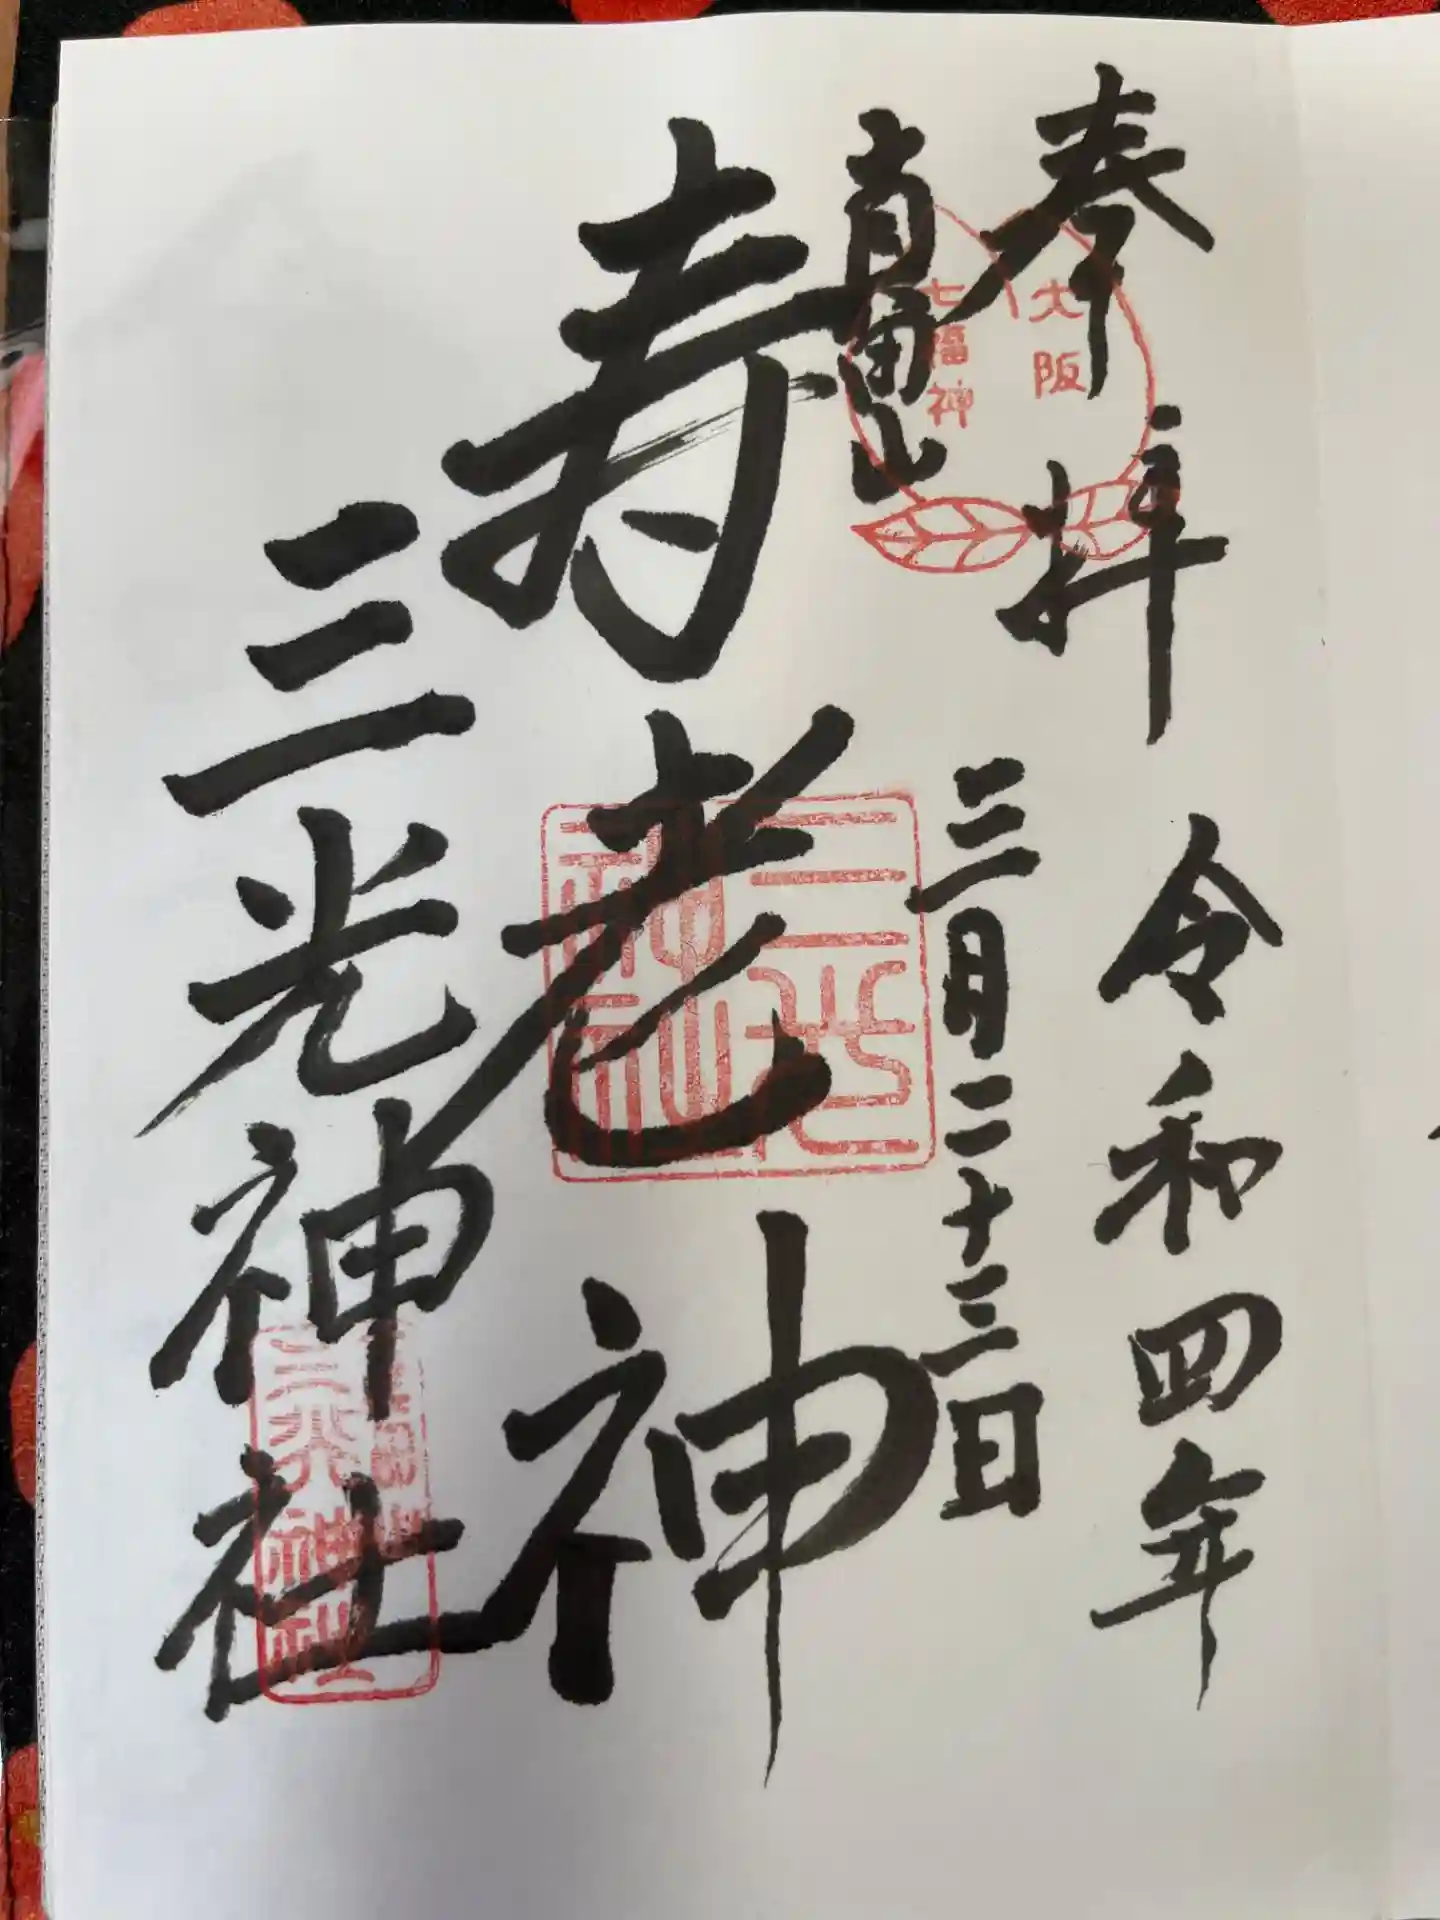 奉拝
令和四年
三月二十三日
真田山
大阪
七福神
寿老神
三光神社
三光神社
三光神社